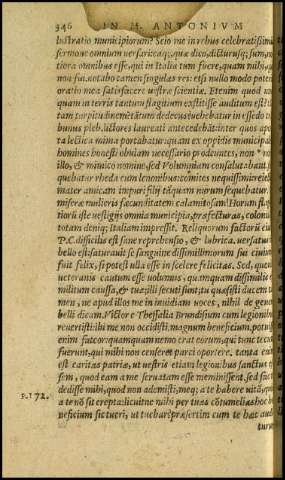 346 IN M. ANTONIVM
lustratio municipiorum? Scio me in rebus celebratissimis
sermone omnium uersari: eaq́; quæ dico, dicturusq́; sum, no
tiora omnibus esse, qui in Italia tum fuere, quàm mihi, qui
non fui. notabo tamen singulas res: etsi nullo modo poterit
oratio mea satisfacere uestræ scientiæ. Etenim quod un
quam in terris tantum flagitium extitisse auditum est?
tam turpitudinem? tātum dedecus? uehebatur in essedo tri
bunus pleb. lictores laureati antecedebāt: inter quos aper
ta lectica mima portabatur: quam ex oppidis municipales
homines honesti obuiam necessario prodeuntes, non
illo, & mimico nomine, sed Volumniam consalutabant. se
quebatur rheda cum lenonibus: comites nequissimi: reiecta
mater amicam impuri filij tāquam nurum sequebatur.
miseræ mulieris fœcunditatem calamitosam! Horum fla
tiorū iste uestigijs omnia municipia, præfecturas, colonias
totam deniq; Italiam impressit. Reliquorum factorū eius
P.C. difficilis est sane reprehensio, & lubrica. uersatus
bello est: saturauit se sanguine dissimillimorum sui ciuium
fuit felix, si potest ulla esse in scelere felicitas. Sed, quoniam
ueteranis cautum esse uolumus, quanquam dissimilis est
militum caussa, & tua (illi secuti sunt; tu quæsisti ducem) ta
men, ne apud illos me in inuidiam uoces, nihil de genere
belli dicam. Victor e Thessalia Brundisium cum legionibus
reuertisti: ibi me non occidisti. magnum beneficium. potuisse
enim fateor: quamquam nemo erat eorum, qui tunc tecum
fuerunt, qui mihi non censeret parci oportere. tanta enim
est caritas patriæ, ut uestris etiam legionibus sanctus es
sem, quod eam a me seruatam esse meminissent. sed fac
dedisse mihi, quod non ademisti; meq́; a te habere uitā, quia
p. 172. a te nō sit erepta: licuitne mihi per tuas cōtumelias hoc be
neficium sic tueri, ut tuebar? præsertim cum te hæc audi
turum